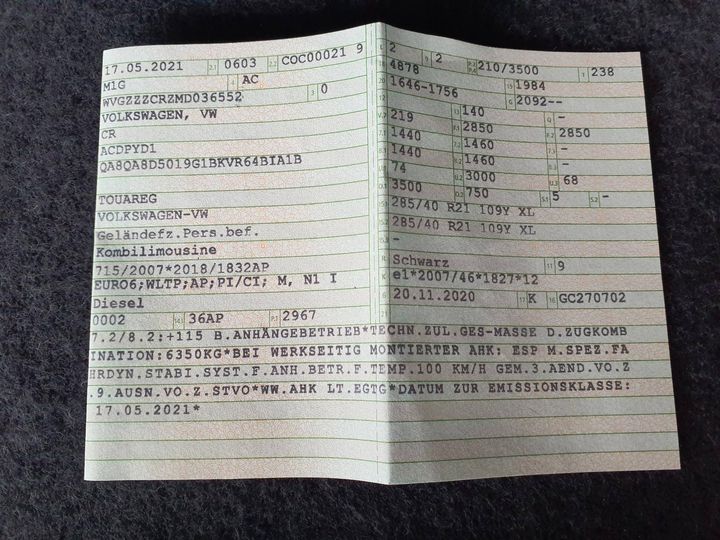 17.05.2021 2.1 0603 2.2 COC00021 9
M1G 4 AC
WVGZZZCRZMD036552 3 0
VOLKSWAGEN, VW
CR
ACDPYD1
QA8QA8D5019G1BKVR64BIA1B
TOUAREG
VOLKSWAGEN-VW
Geländefz.Pers.bef.
Kombilimousine
715/2007*2018/1832AP
EURO6;WLTP;AP;PI/CI; M, N1 I
Diesel
0002 36AP 2967
L 2 9 2 210/3500 T 238
18 4878 1984
20 1646-1756 G 2092--
219 13 140 Q -
1440 F.1 2850 F.2 2850
1440 7.2 1460 7.3 -
1440 8.2 1460 8.3 -
74 U.2 3000 U.3 68
3500 O.2 750 S.1 5 S.2 -
15.1 285/40 R21 109Y XL
15.2 285/40 R21 109Y XL
-
R Schwarz 11 9
K e1*2007/46*1827*12
6 20.11.2020 17 K 16 GC270702
21
7.2/8.2:+115 B.ANHÄNGEBETRIEB*TECHN.ZUL.GES-MASSE D.ZUGKOMB
INATION:6350KG*BEI WERKSEITIG MONTIERTER AHK: ESP M.SPEZ.FA
HRDYN.STABI.SYST.F.ANH.BETR.F.TEMP.100 KM/H GEM.3.AEND.VO.Z
.9.AUSN.VO.Z.STVO*WW.AHK LT.EGTG*DATUM ZUR EMISSIONSKLASSE:
17.05.2021*